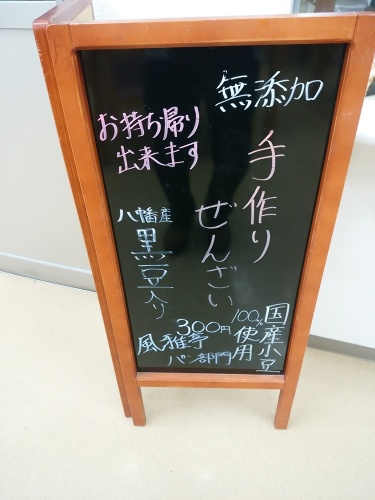 無添加
手作り
ぜんざい
お持ち帰り
出来ます
八幡産
黒豆入り
国産小豆
100%使用
300円
風雅亭
パン部門